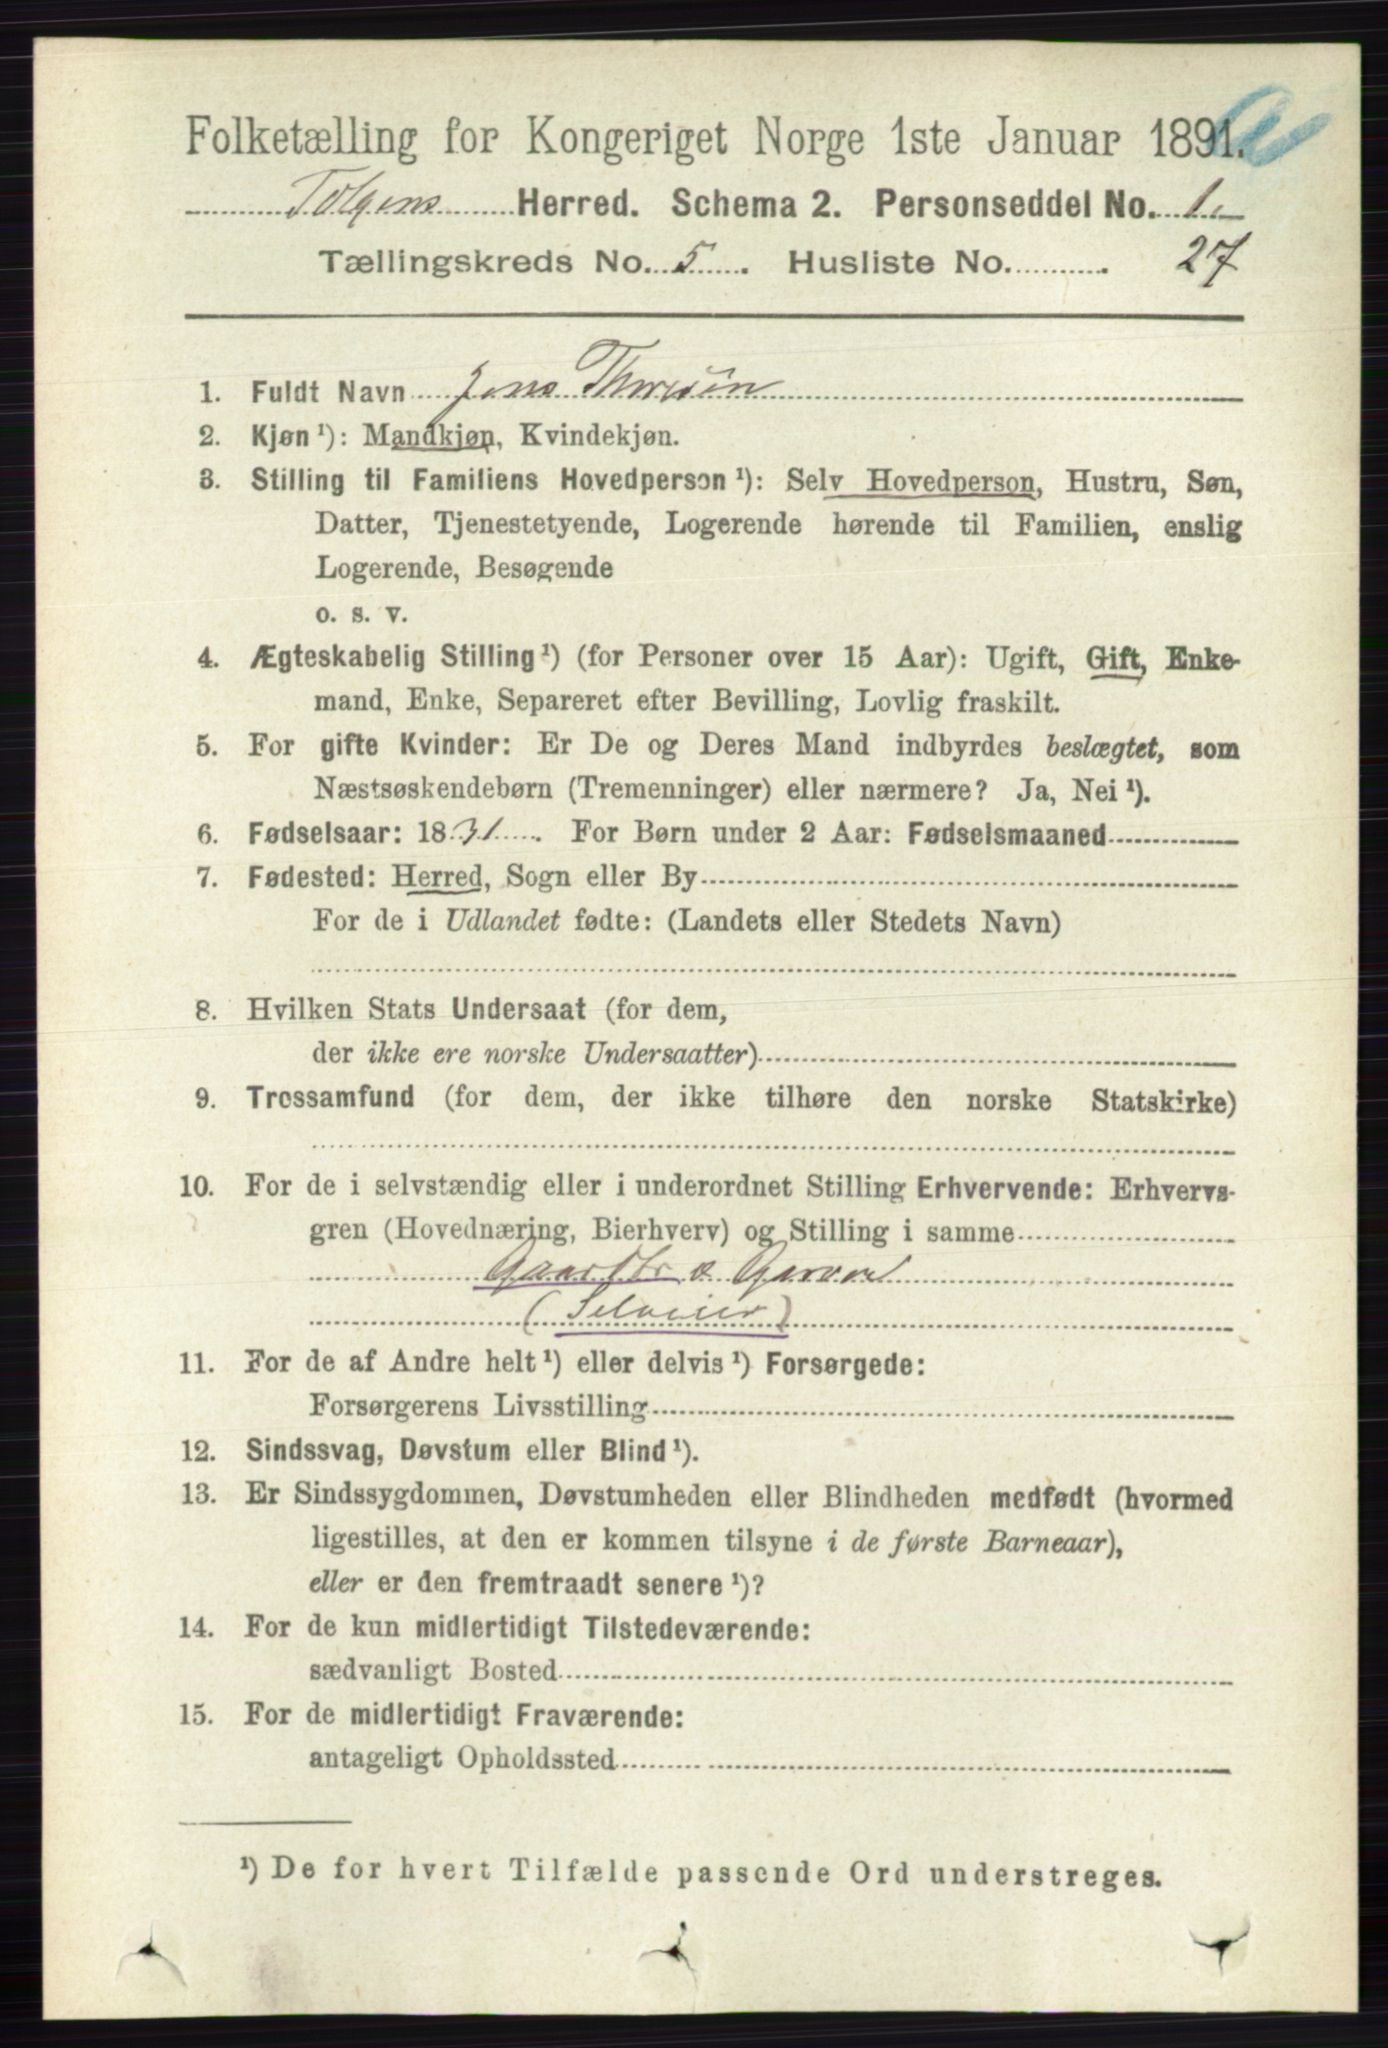 Folketælling for Kongeriget Norge 1ste Januar 1891.
Tolgens Herred. Schema 2. Personseddel No. 1.
Tællingskreds No. 5. Husliste No. 27
1. Fuldt Navn Jens
2. Kjøn ¹): Mandkjøn, Kvindekjøn.
3. Stilling til Familiens Hovedperson ¹): Selv Hovedperson, Hustru, Søn,
Datter, Tjenestetyende, Logerende hørende til Familien, enslig
Logerende, Besøgende
o. s. v.
4. Ægteskabelig Stilling ¹) (for Personer over 15 Aar): Ugift, Gift, Enke-
mand, Enke, Separeret efter Bevilling, Lovlig fraskilt.
5. For gifte Kvinder: Er De og Deres Mand indbyrdes beslægtet, som
Næstsøskendebørn (Tremenninger) eller nærmere? Ja, Nei ¹).
6. Fødselsaar: 1831. For Børn under 2 Aar: Fødselsmaaned
7. Fødested: Herred, Sogn eller By
For de i Udlandet fødte: (Landets eller Stedets Navn)
8. Hvilken Stats Undersaat (for dem,
der ikke ere norske Undersaatter)
9. Trossamfund (for dem, der ikke tilhøre den norske Statskirke)
10. For de i selvstændig eller i underordnet Stilling Erhvervende: Erhvervs-
gren (Hovednæring, Bierhverv) og Stilling i samme
Gaardbr
(Selveier)
11. For de af Andre helt ¹) eller delvis ¹) Forsørgede:
Forsørgerens Livsstilling
12. Sindssvag, Døvstum eller Blind ¹).
13. Er Sindssygdommen, Døvstumheden eller Blindheden medfødt (hvormed
ligestilles, at den er kommen tilsyne i de første Barneaar),
eller er den fremtraadt senere ¹)?
14. For de kun midlertidigt Tilstedeværende:
sædvanligt Bosted
15. For de midlertidigt Fraværende:
antageligt Opholdssted
¹) De for hvert Tilfælde passende Ord understreges.